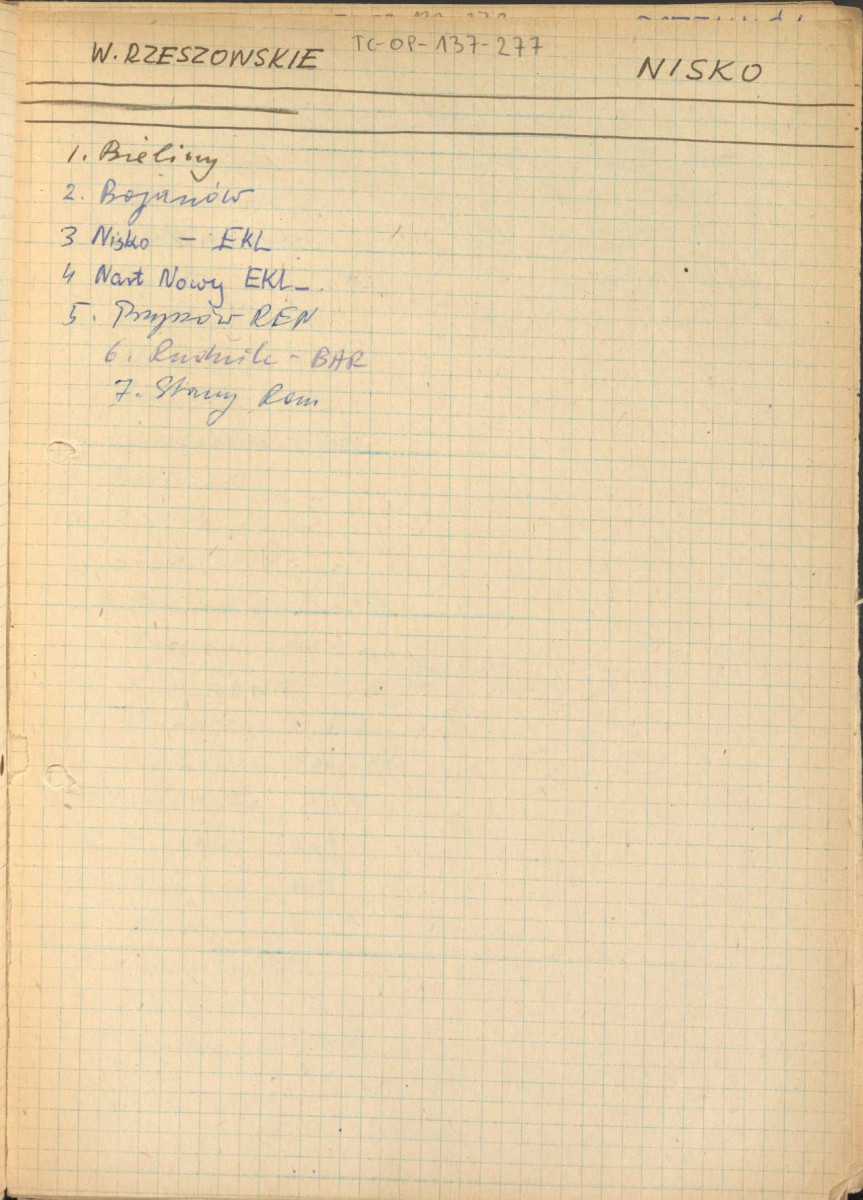 W. RZESZOWSKIE TC-OP-137-277 NISKO
1. Bieliny
2. Bojanów
3 Nisko - EKL
4 Nart Nowy EKL
5. Przyszów REN
6. Rudnik - BAR
7. Stany